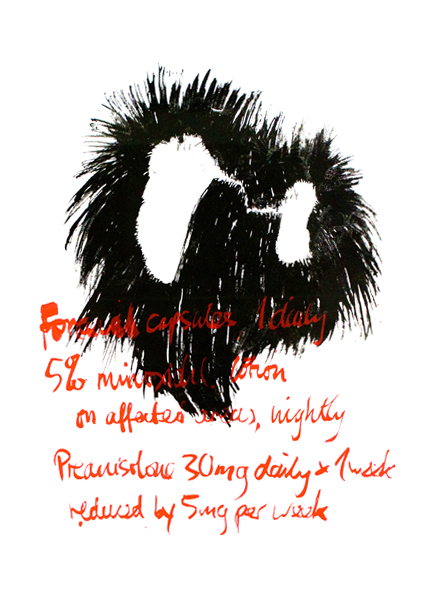 Forceval capsules, 1 daily
5% minoxidil lotion
on affected areas, nightly
Prednisolone 30mg daily x 1 week
reduced by 5mg per week